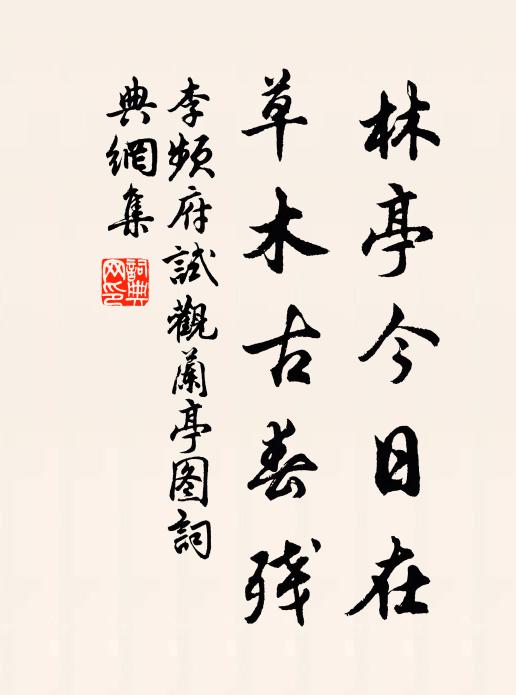 林亭今日在
草木古春残
李频府試觀蘭亭图詞
典網集
詞典网印